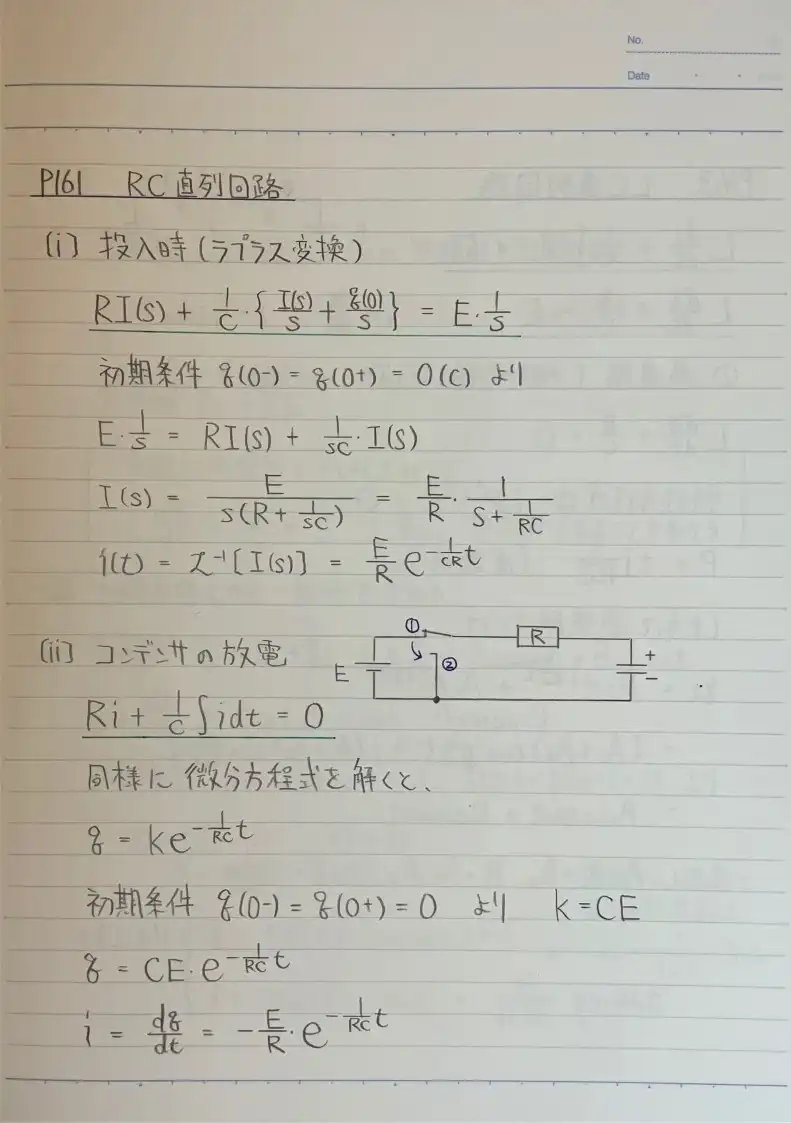 No.
Date
P161 RC直列回路
(i) 投入時(ラプラス変換)
RI(s) + 1/C・{I(s)/s + q(0)/s} = E・1/s
初期条件 q(0-) = q(0+) = 0(C) より
E・1/s = RI(s) + 1/sC・I(s)
I(s) = E/s(R + 1/sC) = E/R・1/(s + 1/RC)
i(t) = L⁻¹[I(s)] = E/R e^(-1/CR t)
(ii) コンデンサの放電
① R
E ② + -
Ri + 1/C ∫idt = 0
同様に微分方程式を解くと、
q = ke^(-1/RC t)
初期条件 q(0-) = q(0+) = 0 より k = CE
q = CE・e^(-1/RC t)
i = dq/dt = -E/R・e^(-1/RC t)